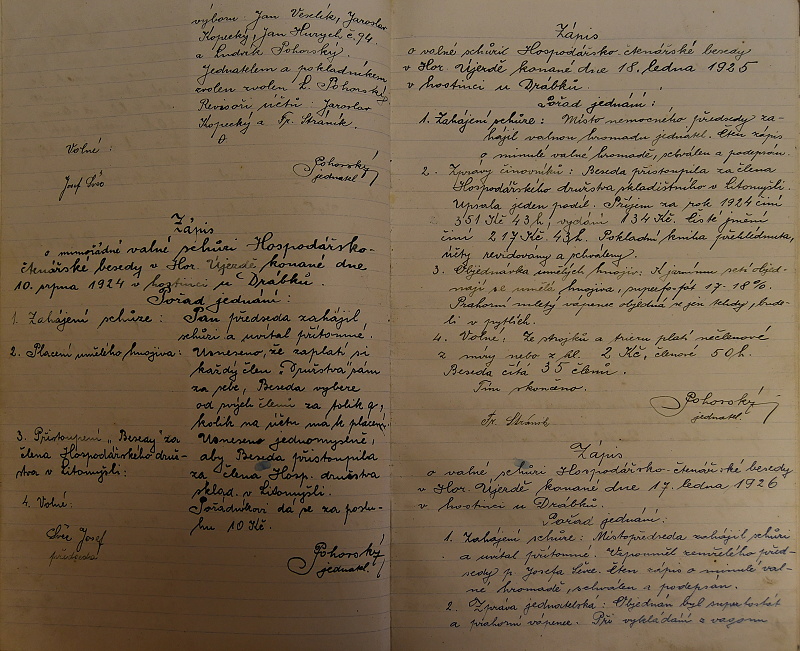 výboru: Jan Veselík, Jaroslav
Kopecký, Jan Hurych č. 94
a Ludvík Pohorský.
Jednatelem a pokladníkem
zvolen zvolen L. Pohorský
Revisoři účtů: Jaroslav
Kopecký a Fr. Stráník.
Volné:
Pohorský
jednatel
Josef
Zápis
o mimořádné valné schůzi Hospodářsko-
čtenářské besedy v Hor. Újezdě konané dne
10. srpna 1924 v hostinci u Drábků.
Pořad jednání:
1. Zahájení schůze: Pan předseda zahájil
schůzi a uvítal přítomné.
2. Placení umělého hnojiva: Usneseno, že zaplatí si
každý člen "Družstva" sám
za sebe, Beseda vybere
od svých členů za tolik q,
kolik na účtu má k placení.
3. Přistoupení "Besedy" za
člena Hospodářského druž-
stva v Litomyšli:
Usneseno jednomyslně,
aby Beseda přistoupila
za člena Hosp. družstva
sklad. v Litomyšli.
4. Volné:
Pořádníkovi dá se za poslu-
hu 10 Kč.
Josef
předseda
Pohorský
jednatel.
Zápis
o valné schůzi Hospodářsko-čtenářské besedy
v Hor. Újezdě konané dne 18. ledna 1925
v hostinci u Drábků.
Pořad jednání:
1. Zahájení schůze: Místo nemocného předsedy za-
hájil valnou hromadu jednatel. Čten zápis
o minulé valné hromadě, schválen a podepsán.
2. Zprávy činovníků: Beseda přistoupila za člena
Hospodářského družstva skladištního v Litomyšli.
Upsala jeden podíl. Příjem za rok 1924 činí
351 Kč 43 h, vydání 134 Kč. Čisté jmění
činí 217 Kč. 43 h. Pokladní kniha přehlédnuta,
účty revidovány a schváleny.
3. Objednávka umělých hnojiv: K jarnímu setí objed-
nají se umělá hnojiva, superfosfát 17-18%.
Prahorní mletý vápenec objedná se jen tehdy, bude-
li v pytlích.
4. Volné, Ze strojků a trieru platí nečlenové
z míry nebo z hl. 2 Kč, členové 50 h.
Beseda čítá 35 členů.
Tím skončeno.
Pohorský
jednatel.
Fr. Stráník
Zápis
o valné schůzi Hospodářsko-čtenářské besedy
v Hor. Újezdě konané dne 17. ledna 1926
v hostinci u Drábků.
Pořad jednání:
1. Zahájení schůze: Místopředseda zahájil schůzi
a uvítal přítomné. Vzpomněl zemřelého před-
sedy p. Josefa Čten zápis o minulé val-
né hromadě, schválen a podepsán.
2. Zpráva jednatelská: Objednán byl superfosfát
a prahorní vápenec. Při vykládání z vagonu